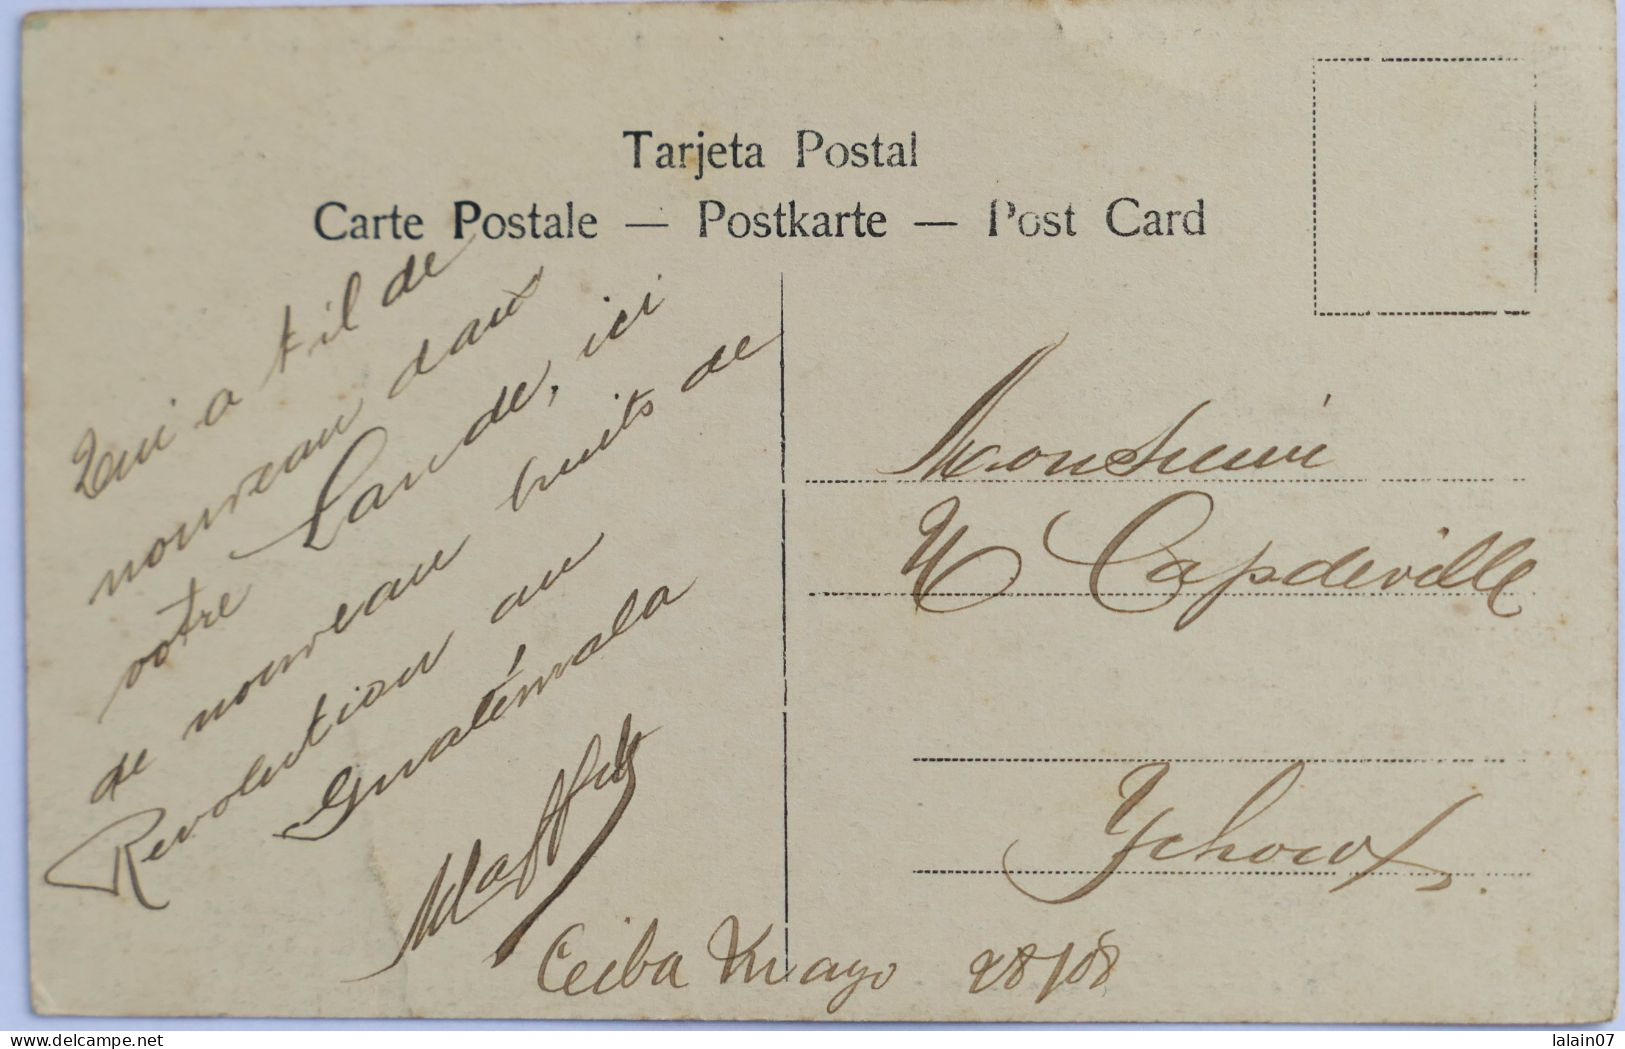 Tarjeta Postal
Carte Postale — Postkarte — Post Card
Qui a til de
nouveau dans
votre Lande, ici
de nouveau bruits de
Revolution au
Guatémala
Ceiba Mayo 28/08
Monsieur
Capdeville
Ychoux.
delcampe.net
lalain07